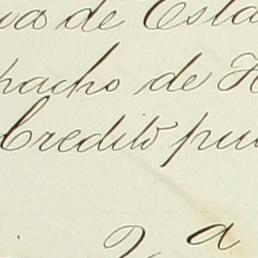 va de Esta
pacho de H
Credito pu
2ª